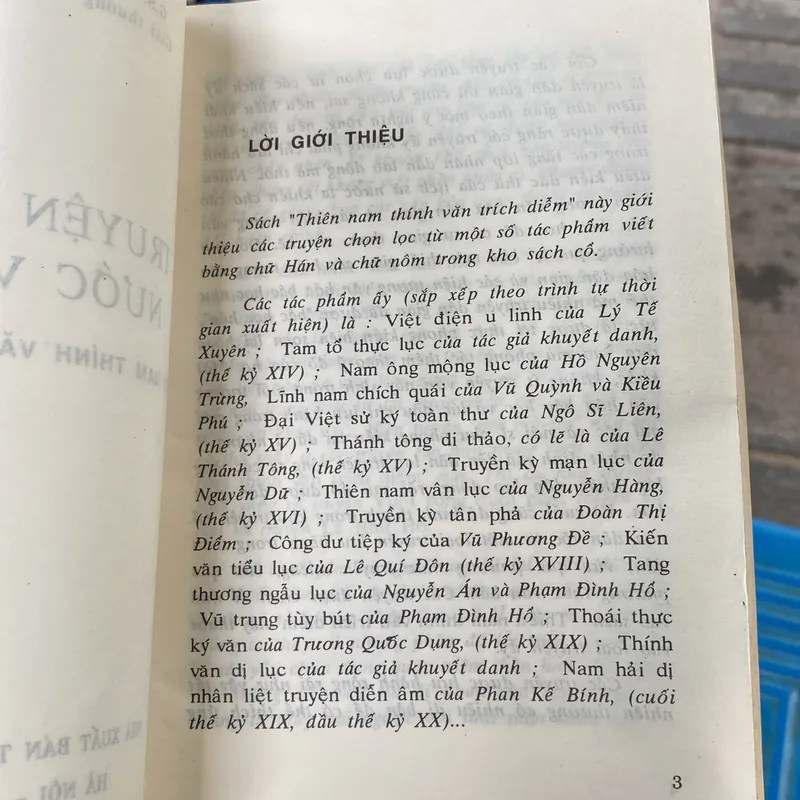 LỜI GIỚI THIỆU
Sách "Thiên nam thính văn trích diễm" này giới
thiệu các truyện chọn lọc từ một số tác phẩm viết
bằng chữ Hán và chữ nôm trong kho sách cổ.
Các tác phẩm ấy (sắp xếp theo trình tự thời
gian xuất hiện) là : Việt điện u linh của Lý Tế
Xuyên ; Tam tổ thực lục của tác giả khuyết danh,
(thế kỷ XIV) ; Nam ông mộng lục của Hồ Nguyên
Trừng, Lĩnh nam chích quái của Vũ Quỳnh và Kiều
Phú ; Đại Việt sử ký toàn thư của Ngô Sĩ Liên,
(thế kỷ XV) ; Thánh tông di thảo, có lẽ là của Lê
Thánh Tông, (thế kỷ XV) ; Truyền kỳ mạn lục của
Nguyễn Dữ ; Thiên nam vân lục của Nguyễn Hàng,
(thế kỷ XVI) ; Truyền kỳ tân phả của Đoàn Thị
Điểm ; Công dư tiệp ký của Vũ Phương Đề ; Kiến
văn tiểu lục của Lê Quí Đôn (thế kỷ XVIII) ; Tang
thương ngẫu lục của Nguyễn Án và Phạm Đình Hổ ;
Vũ trung tùy bút của Phạm Đình Hổ ; Thoái thực
ký văn của Trương Quốc Dụng, (thế kỷ XIX) ; Thính
văn dị lục của tác giả khuyết danh ; Nam hải dị
nhân liệt truyện diễn âm của Phan Kế Bính, (cuối
thế kỷ XIX, đầu thế kỷ XX)...
3